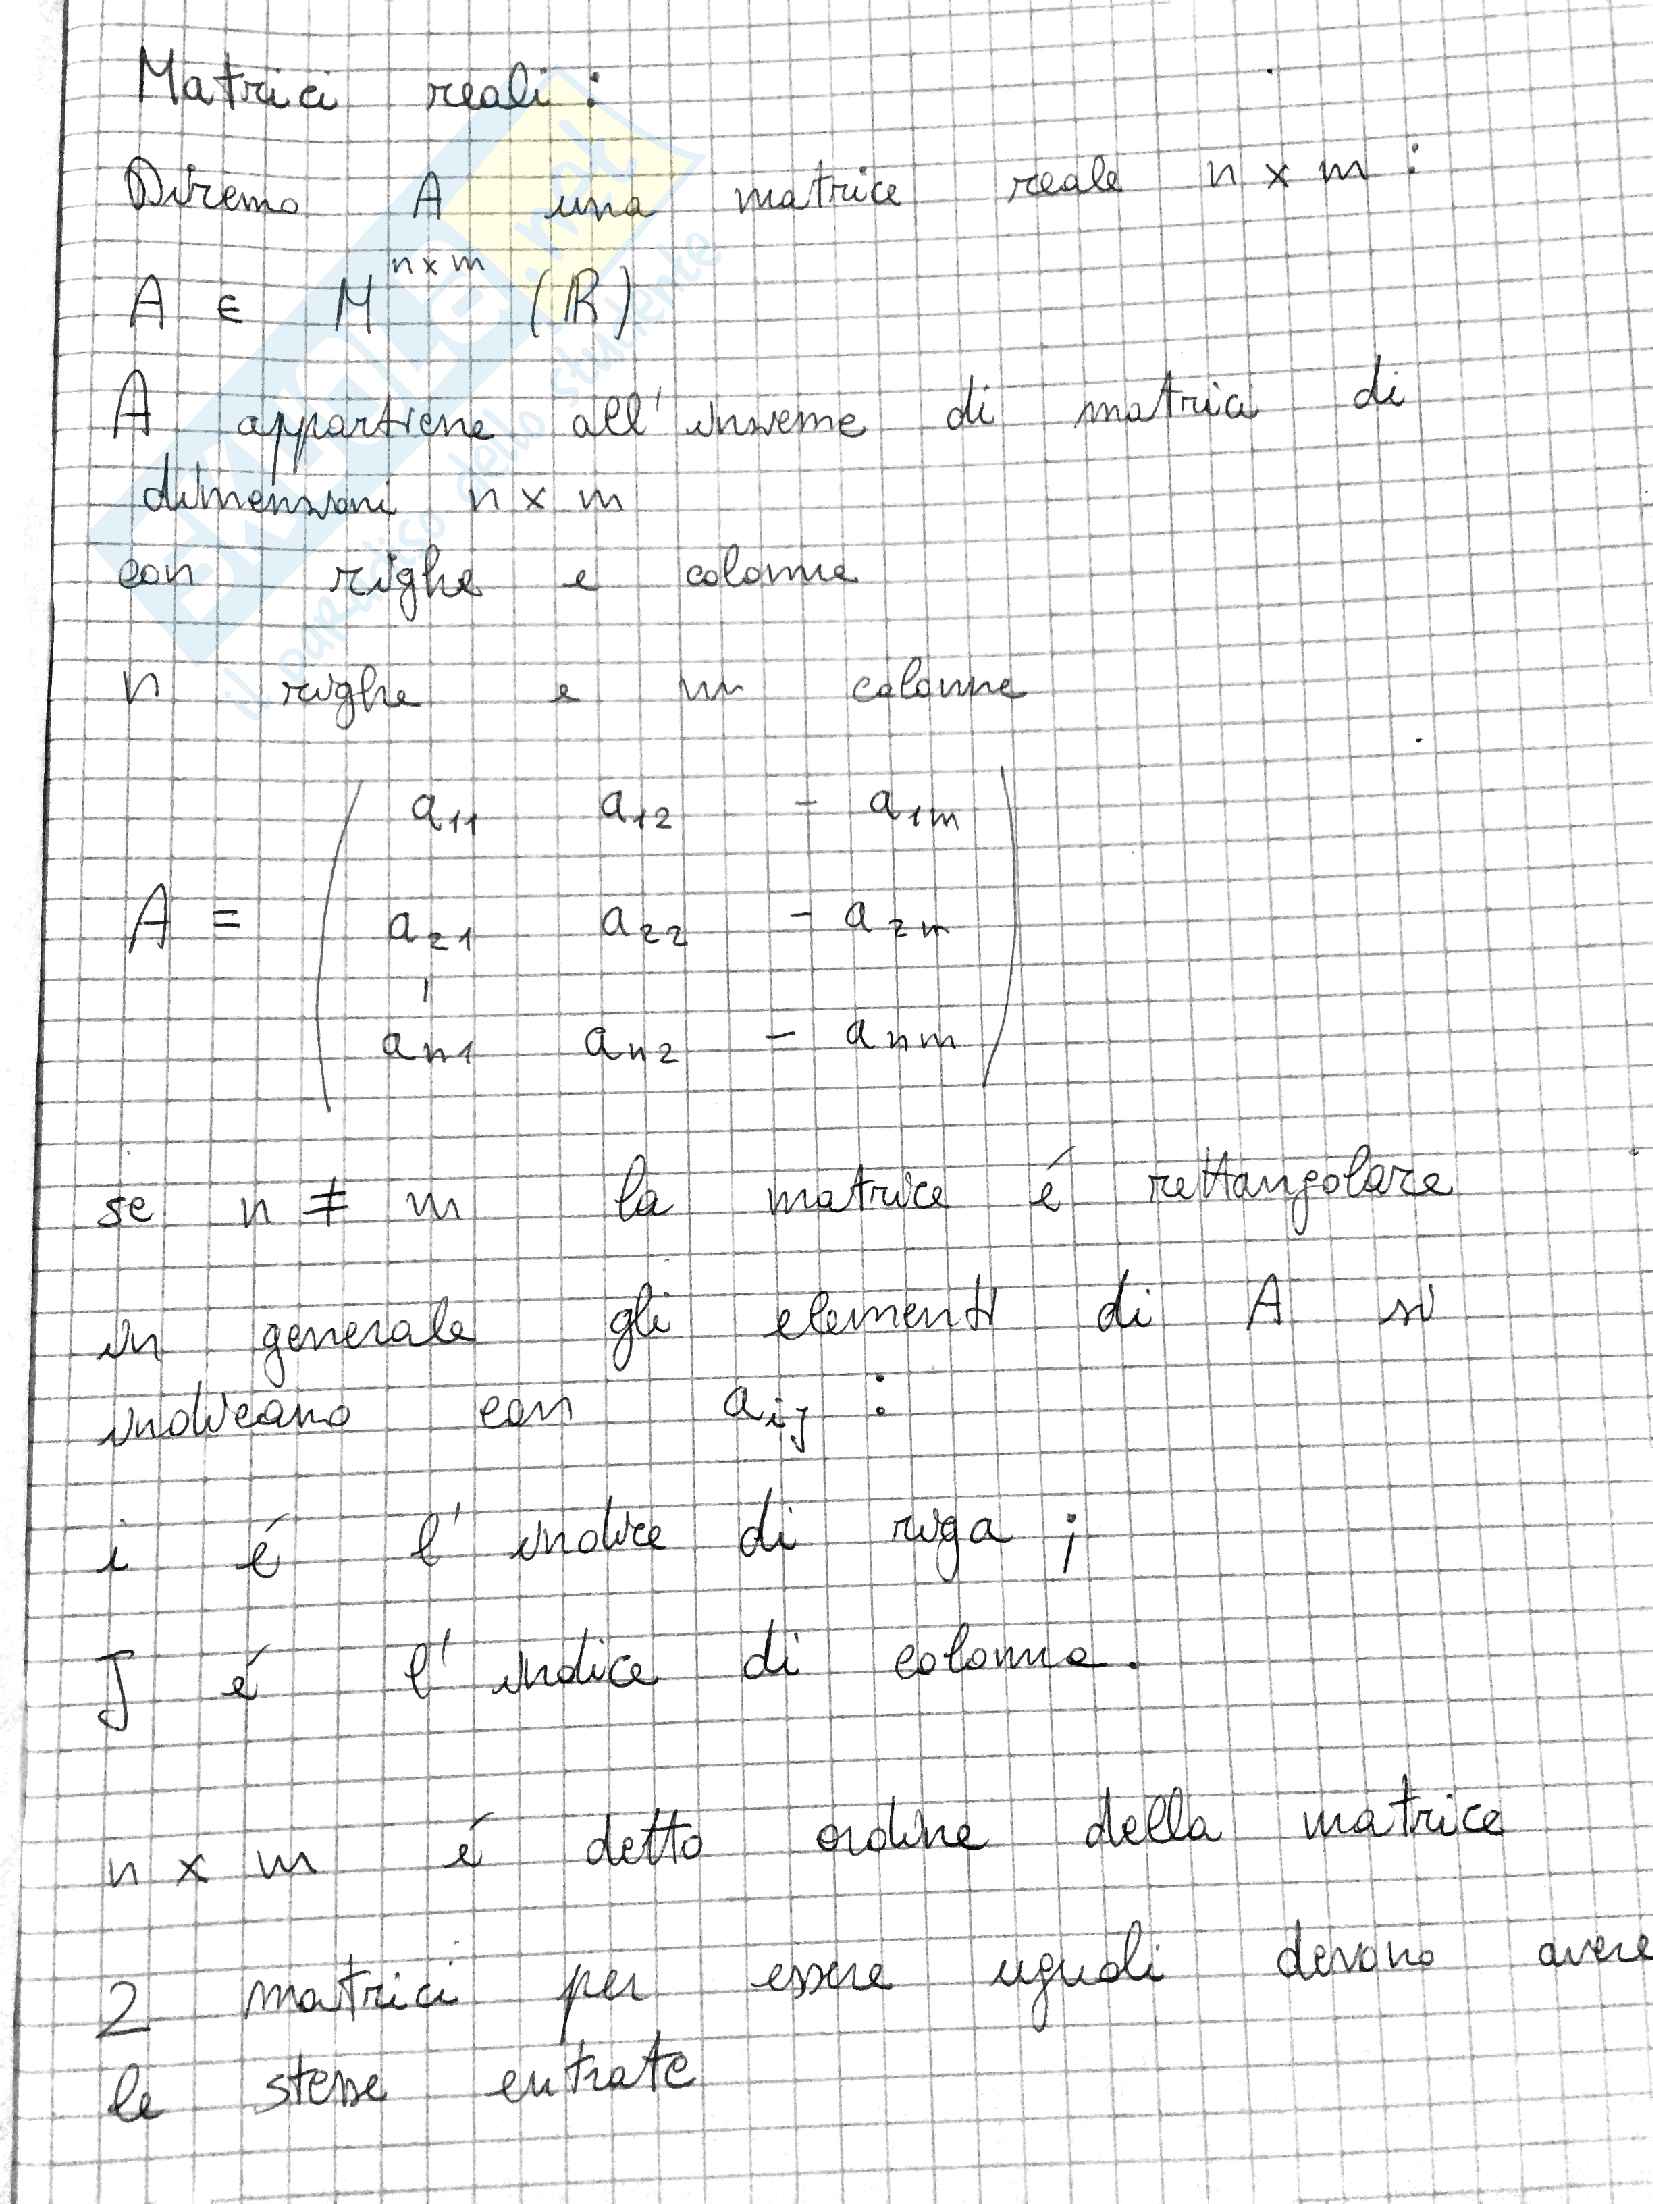 Matrici reali:
Diremo A una matrice reale n x m :
A ∈ M^{n x m} (R)
A appartiene all'insieme di matrici di
dimensioni n x m
con righe e colonne
n righe e m colonne
a_{11} a_{12} - a_{1m}
A = a_{21} a_{22} - a_{2m}
a_{n1} a_{n2} - a_{nm}
se n ≠ m la matrice é rettangolare
in generale gli elementi di A si
indicano con a_{ij} :
i é l'indice di riga ;
J é l'indice di colonna.
n x m é detto ordine della matrice
2 matrici per essere uguali devono avere
le stesse entrate